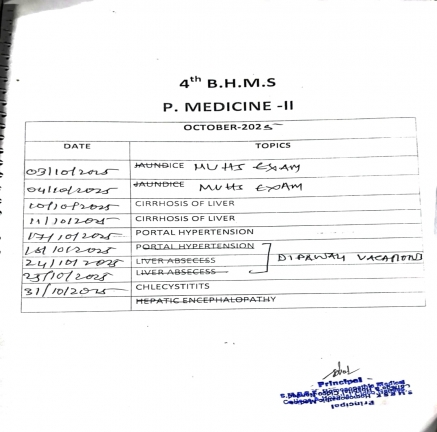 4th B.H.M.S
P. MEDICINE -II
OCTOBER-2025
DATE TOPICS
03/10/2025 JAUNDICE MUHS EXAM
04/10/2025 JAUNDICE MUHS EXAM
10/10/2025 CIRRHOSIS OF LIVER
11/10/2025 CIRRHOSIS OF LIVER
17/10/2025 PORTAL HYPERTENSION
18/10/2025 PORTAL HYPERTENSION
24/10/2025 LIVER ABSECESS DIPAWALI VACATIONS
25/10/2025 LIVER ABSECESS
31/10/2025 CHLECYSTITITS
HEPATIC ENCEPHALOPATHY
Principal
Principal